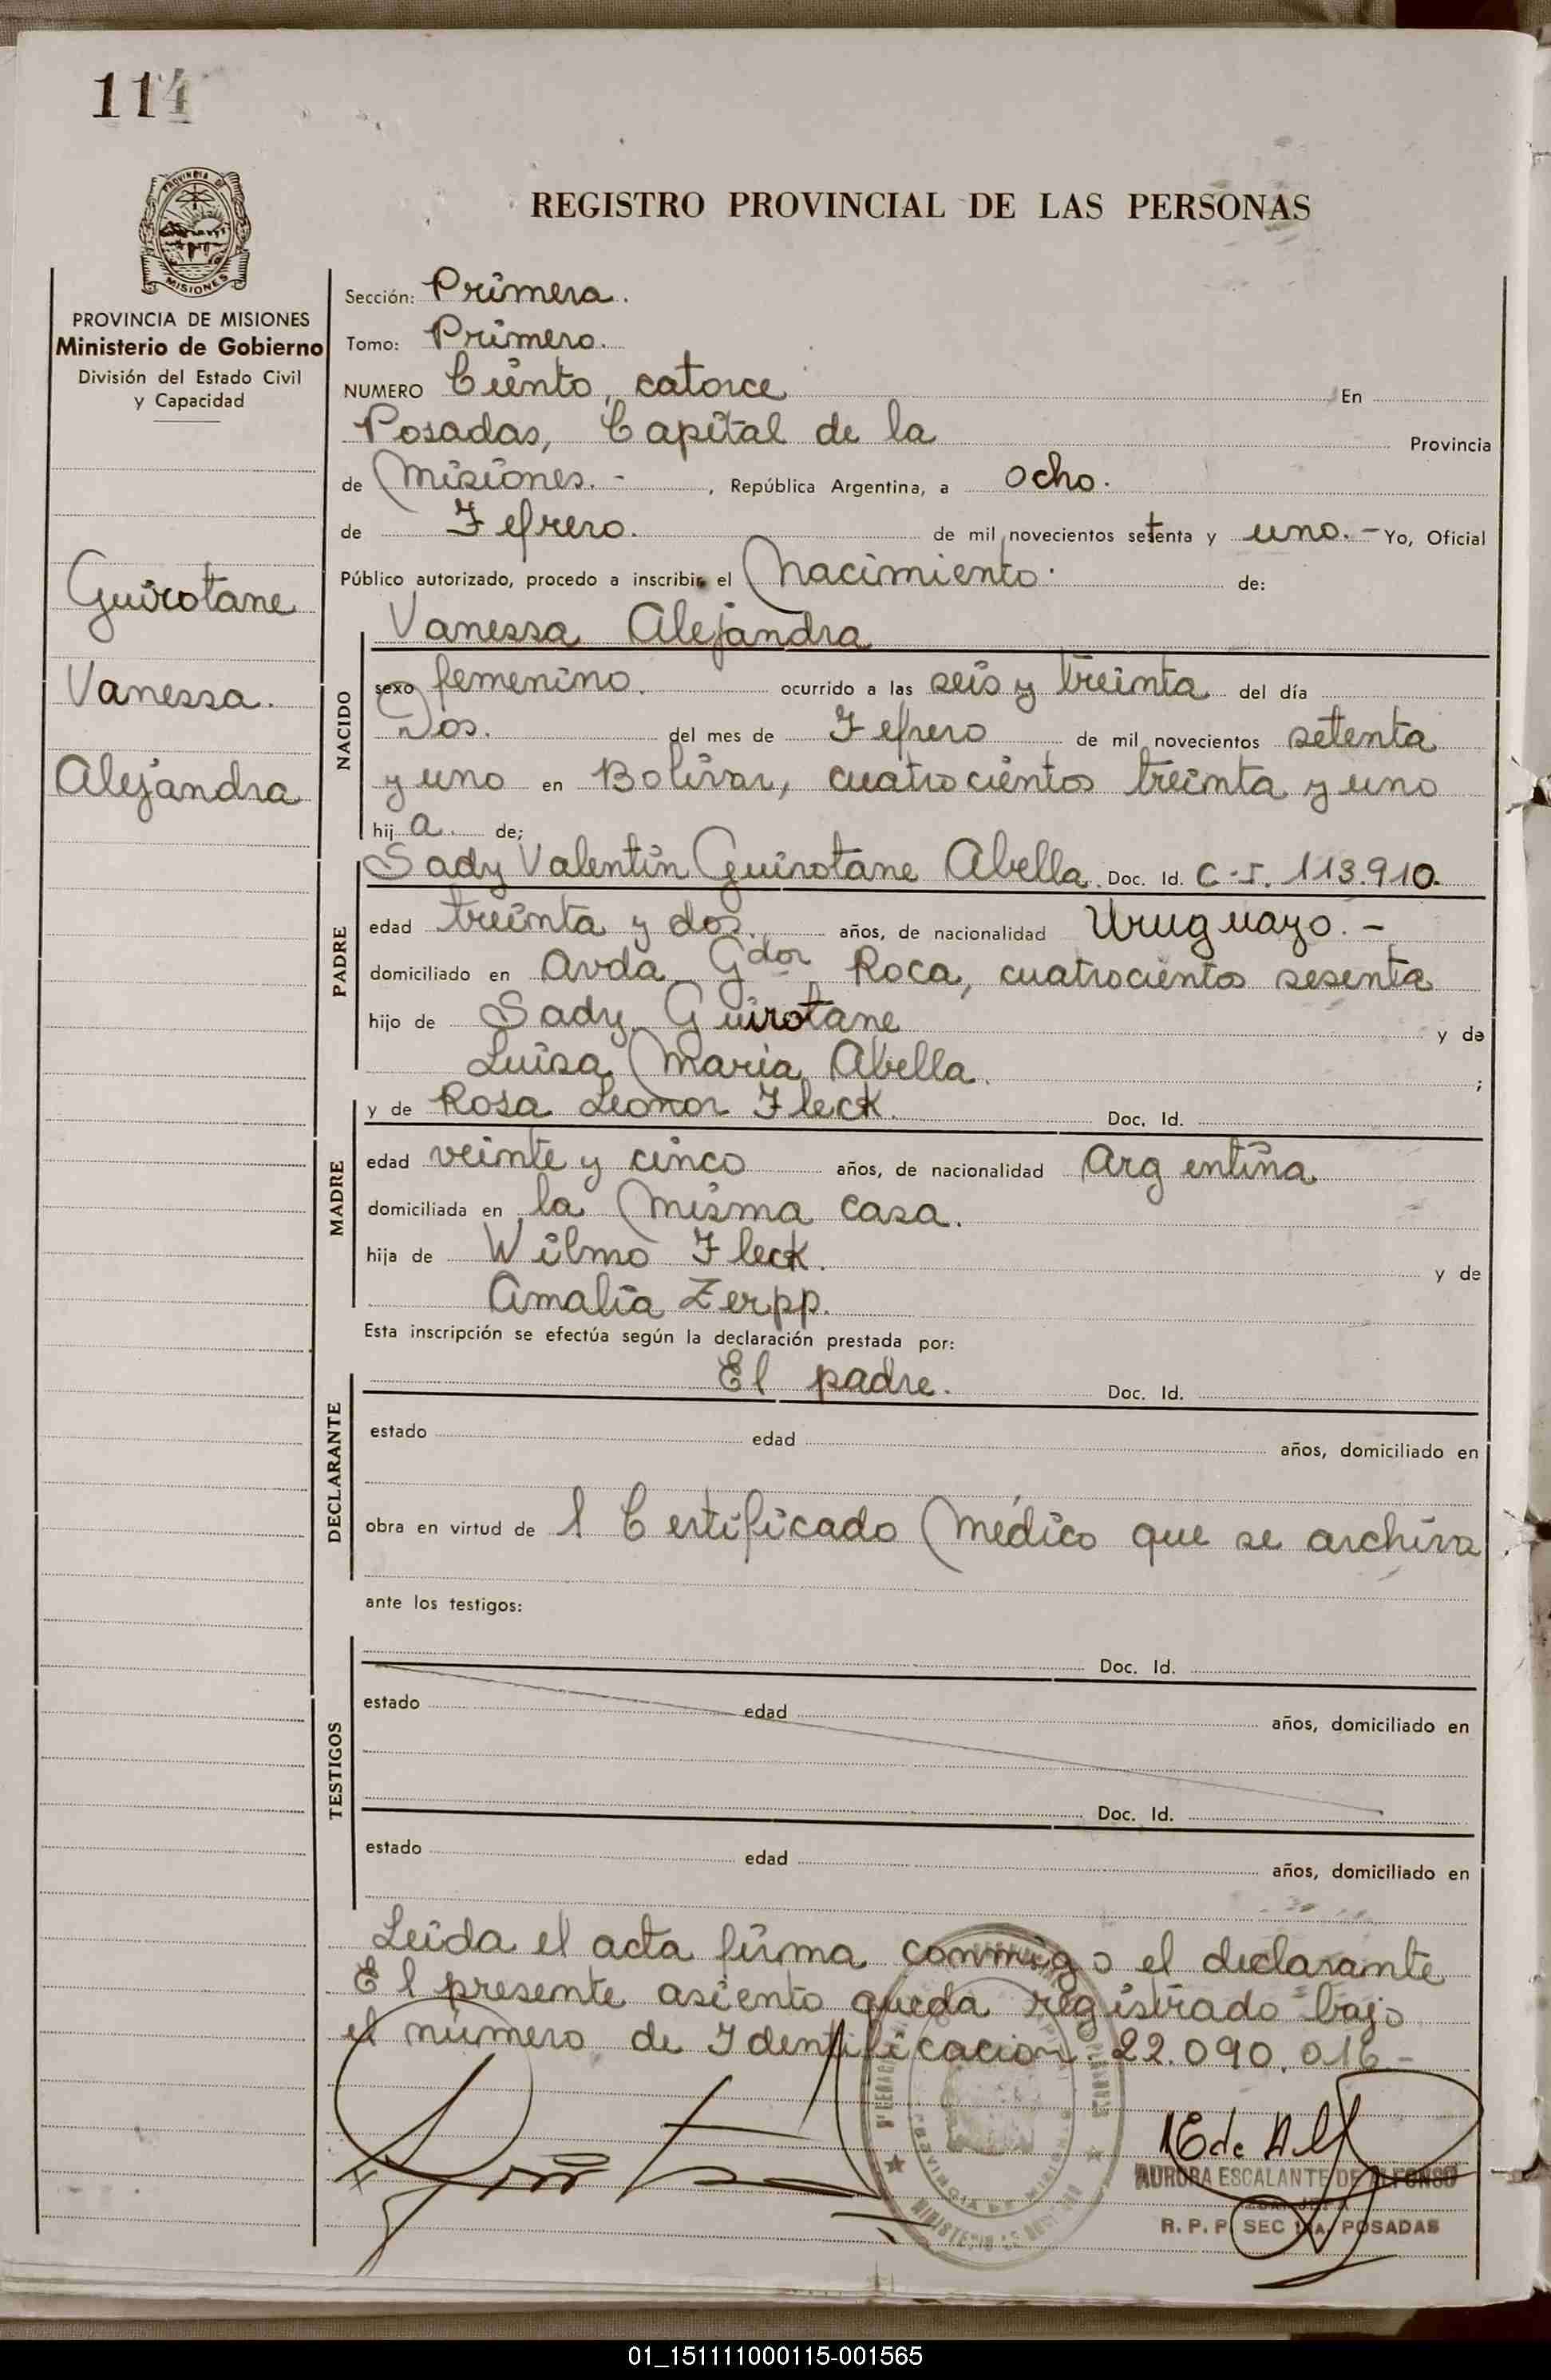 114
PROVINCIA DE
MISIONES
REGISTRO PROVINCIAL DE LAS PERSONAS
PROVINCIA DE MISIONES
Ministerio de Gobierno
División del Estado Civil
y Capacidad
Guirotane
Vanessa.
Alejandra
Sección: Primera.
Tomo: Primero.
NUMERO Ciento, catorce En
Posadas, Capital de la Provincia
de Misiones. - , República Argentina, a ocho.
de Febrero. de mil novecientos setenta y uno. - Yo, Oficial
Público autorizado, procedo a inscribir el Nacimiento. de:
NACIDO
Vanessa Alejandra
sexo femenino. ocurrido a las seis y treinta del día
Dos. del mes de Febrero de mil novecientos setenta
y uno en Bolívar, cuatrocientos treinta y uno
hij a. de;
PADRE
Sady Valentín Guirotane Abella. Doc. Id. C.I. 113.910.
edad treinta y dos. años, de nacionalidad Uruguayo. -
domiciliado en Avda Gdor Roca, cuatrocientos sesenta
hijo de Sady Guirotane y de
Luisa María Abella. ;
MADRE
y de Rosa Leonor Fleck. Doc. Id.
edad veinte y cinco años, de nacionalidad Argentina
domiciliada en la misma casa.
hija de Wilmo Fleck. y de
Amalia Zerpp.
Esta inscripción se efectúa según la declaración prestada por:
DECLARANTE
El padre. Doc. Id.
estado edad años, domiciliado en
obra en virtud de l Certificado Médico que se archiva
ante los testigos:
TESTIGOS
Doc. Id.
estado edad años, domiciliado en
Doc. Id.
estado edad años, domiciliado en
Leída el acta firma conmigo el declarante
El presente asiento queda registrado bajo
el número de Identificacion: 22.090.016-
AURORA ESCALANTE DE ALFONSO
R. P. P. SEC 1ra. POSADAS
01_151111000115-001565